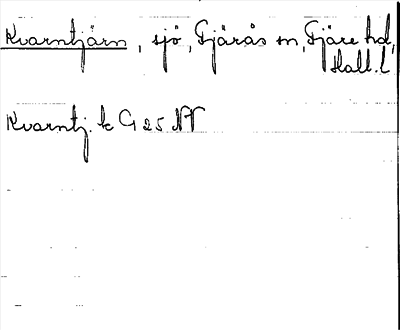 Kvarntjärn, sjö, Fjärås sn, Fjäre hd,
Hall. l.
Kvarntj. k G 25 NV